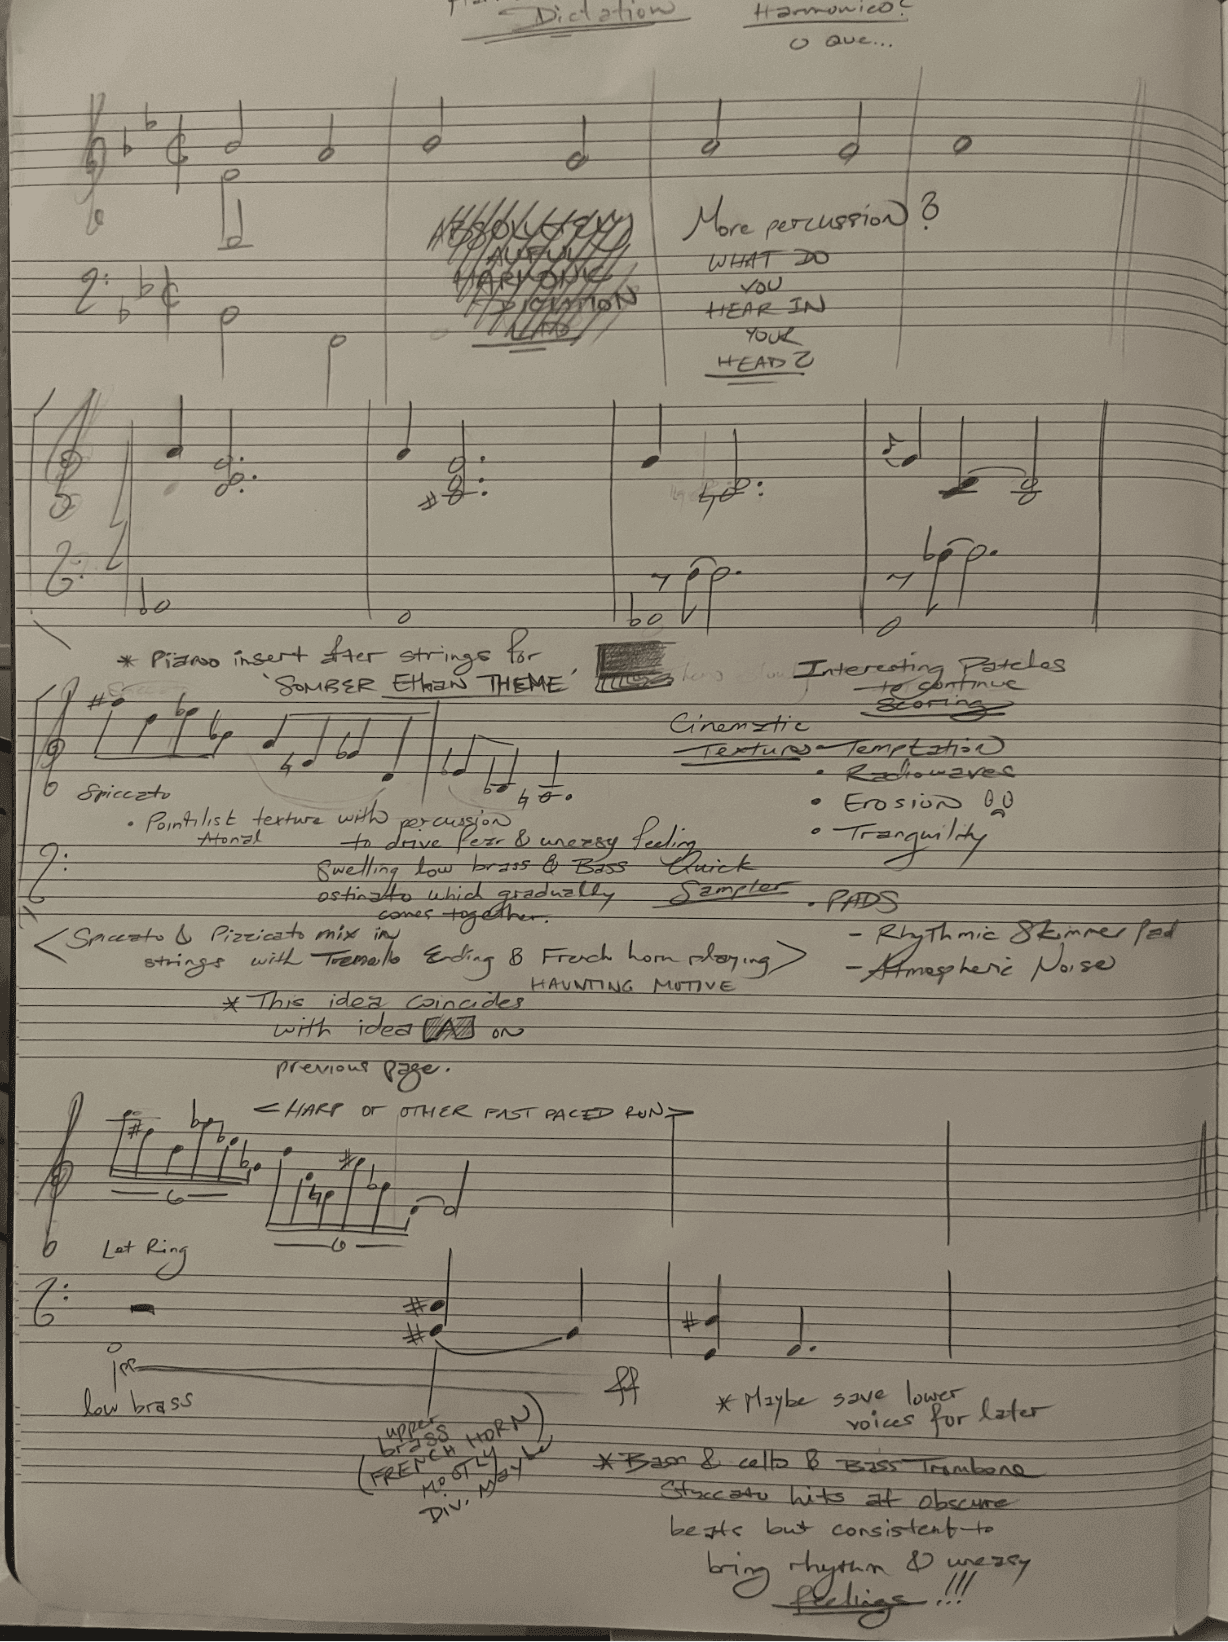 Dictation
Harmonico?
o que...
ABSOLUTELY
AWFUL
HARMONIC
DICTATION
More percussion?
WHAT DO
YOU
HEAR IN
YOUR
HEAD?
* Piano insert after strings for
"SOMBER Ethan THEME"
Interesting Patches
to continue
scoring
Cinematic
Textures - Temptation
• Radiowaves
• Erosion
• Tranquility
Spiccato
• Pointilist texture with percussion
Atonal
to drive fear & uneasy feeling
Swelling low brass & Bass
ostinato which gradually
comes together.
Quick
Sampler
• PADS
- Rhythmic Skimmer Pad
- Atmospheric Noise
<Spiccato & Pizzicato mix in
strings with Tremollo Ending & French horn playing>
HAUNTING MOTIVE
* This idea coincides
with idea [A] on
previous page.
<HARP or OTHER FAST PACED RUN>
6
6
Let Ring
pp
low brass
ff
upper
brass
(FRENCH HORN
MOSTLY
Div. Maybe)
* Maybe save lower
voices for later
* Bass & cello & Bass Trombone
Staccato hits at obscure
beats but consistent to
bring rhythm & uneasy
feelings!!!